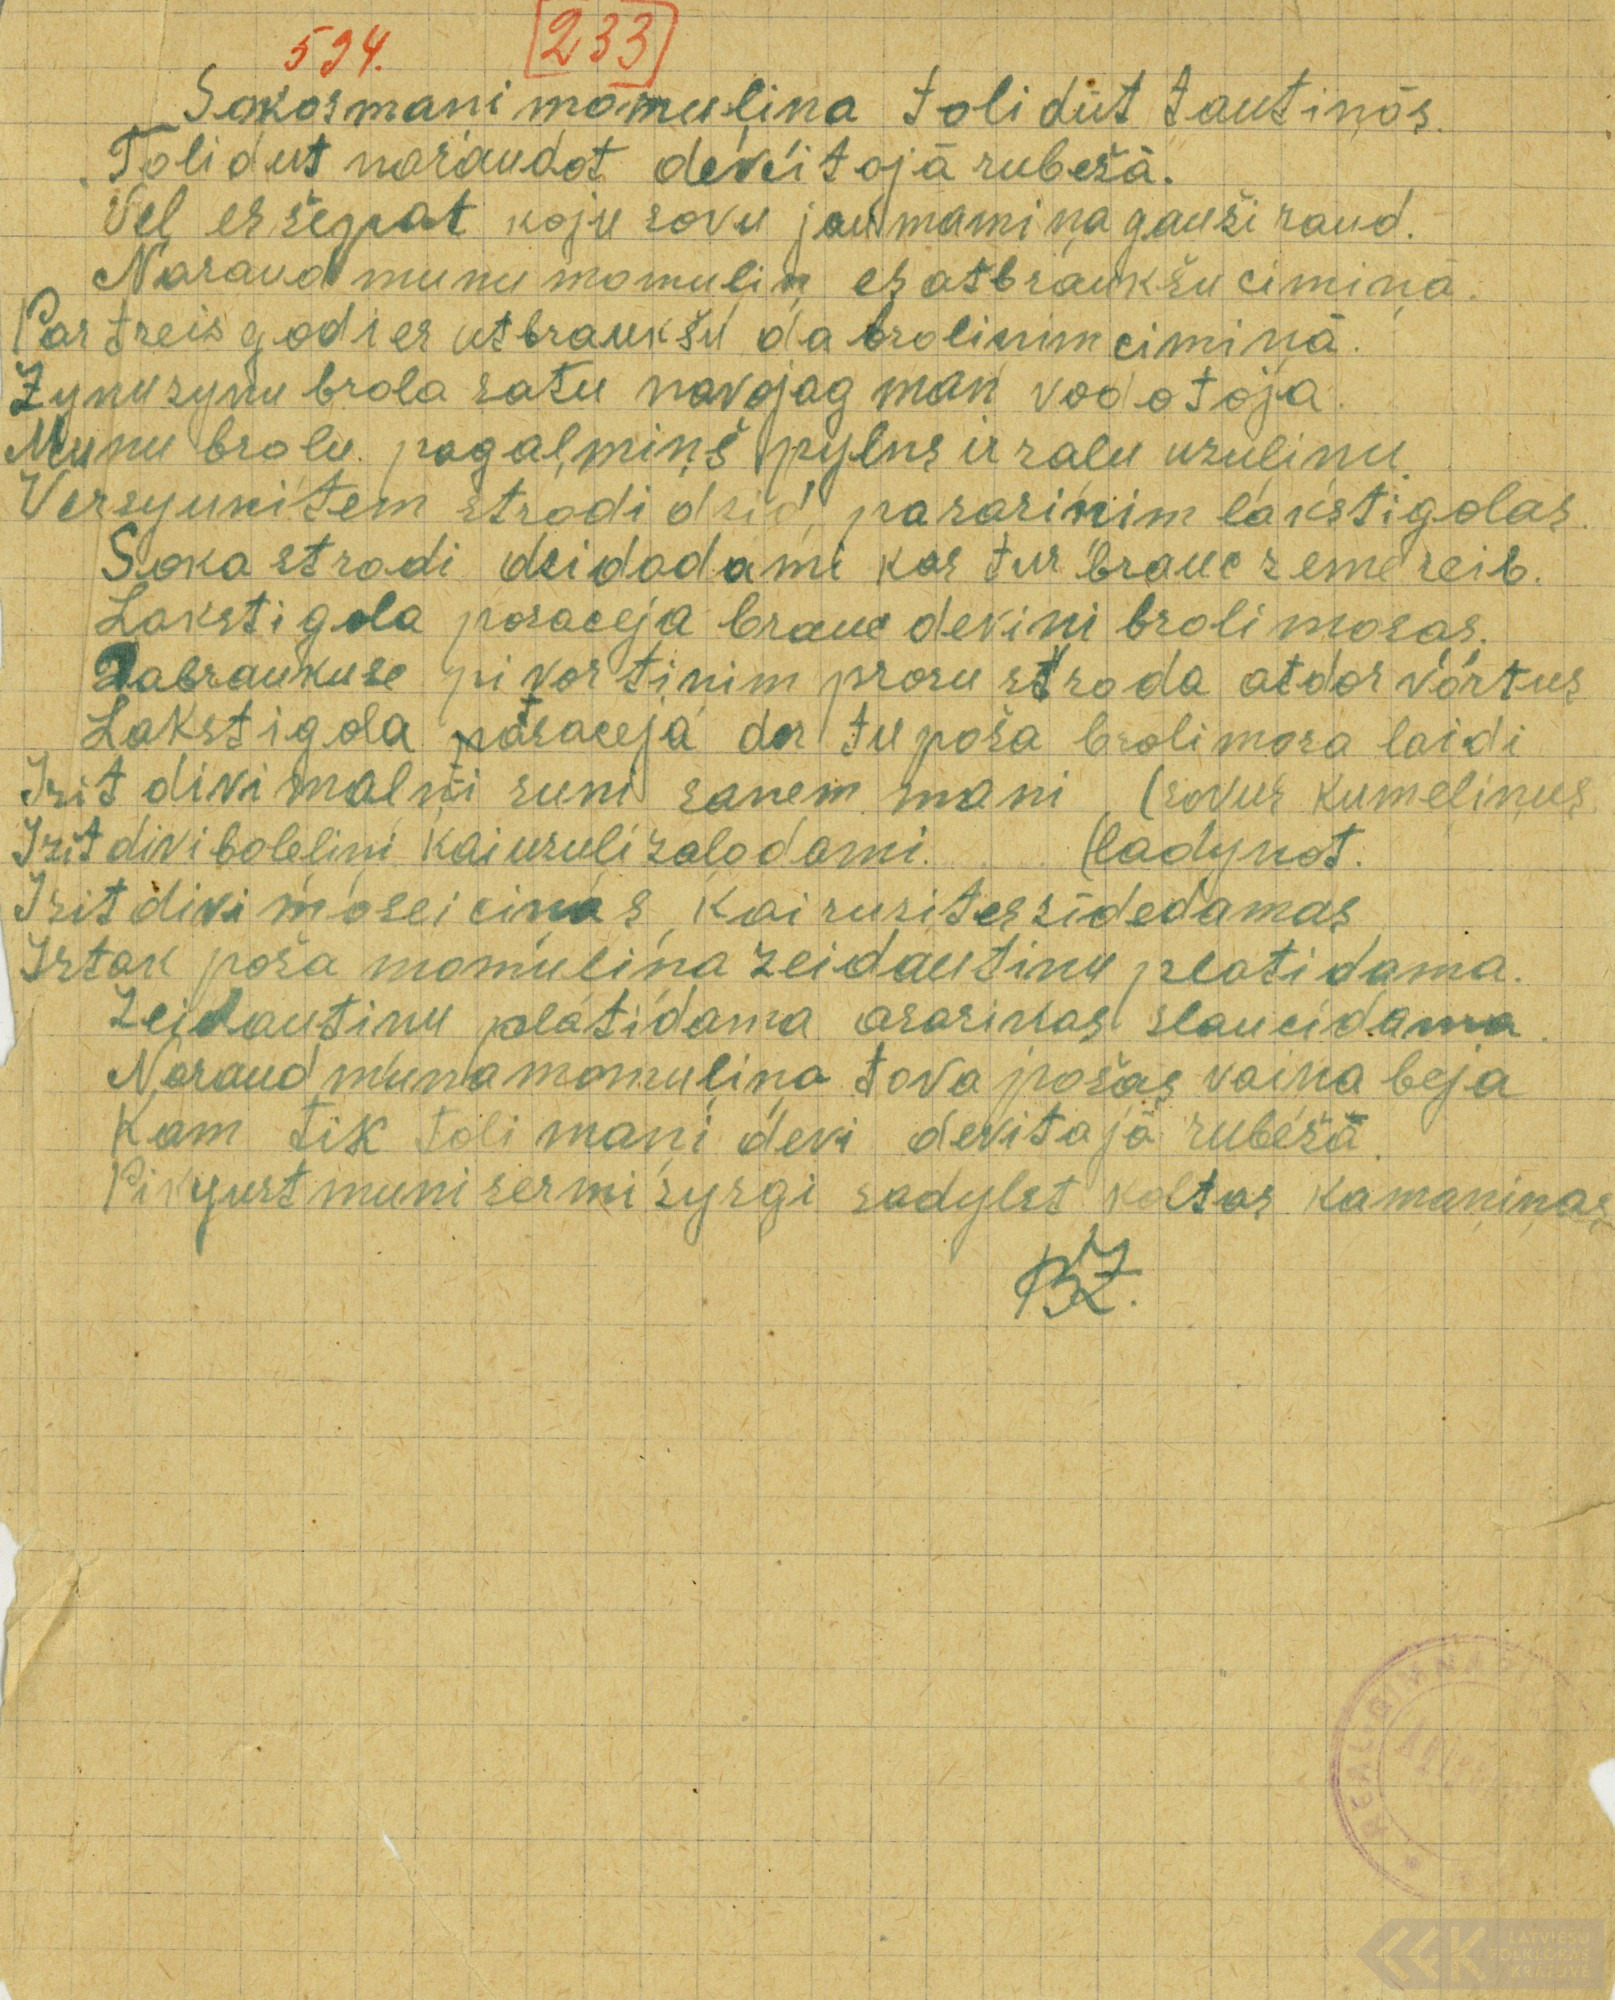 594. [233]
Sokos mani momuļina toli dūt tautinōs.
Toli dut naraudot deveitojā rubežā.
Vel es šepat koju sovu jau mamiņa gauži raud.
Naraud munu momuliņ es atbraukšu ciminā.
Par treis godi es utbraukšu da broliņim ciminā.
Zynu zynu brola satu navojag man vodotoja.
Munu brolu pagalmiņš pylns ir zalu uzulinu.
Versyunitem strodi dzid, pazarinim lakstigolas.
Soka strodi dzidodami kas tur brauc zeme reib.
Lakstigola pasaceja brauc deviņi broli mosas.
Dabraukuse pi vortinim prosu stroda atdor vōrtus
Lakstigola pasaceja dor tu poša broli mosa laidi
Izit divi malni suni sanem mani (sovus kumelinus
Izit divi bolelini kai uzuli zalodami. (ladynot.
Izit divi moseicinas kai rusites zidedamas
Iztak poša momuļina zeidautinu platidama.
Zeidautinu platidama asarinas slaucidama.
Naraud muna momuļina tova pošas vaina beja
Kam tik toli mani devi devitajā rubežā.
Pikyust muni sermi zyrgi sadylst kaltas kamaņiņas
BZ.
REALĢIMNĀZI
LATVIEŠU
FOLKLORAS
KRĀTUVE